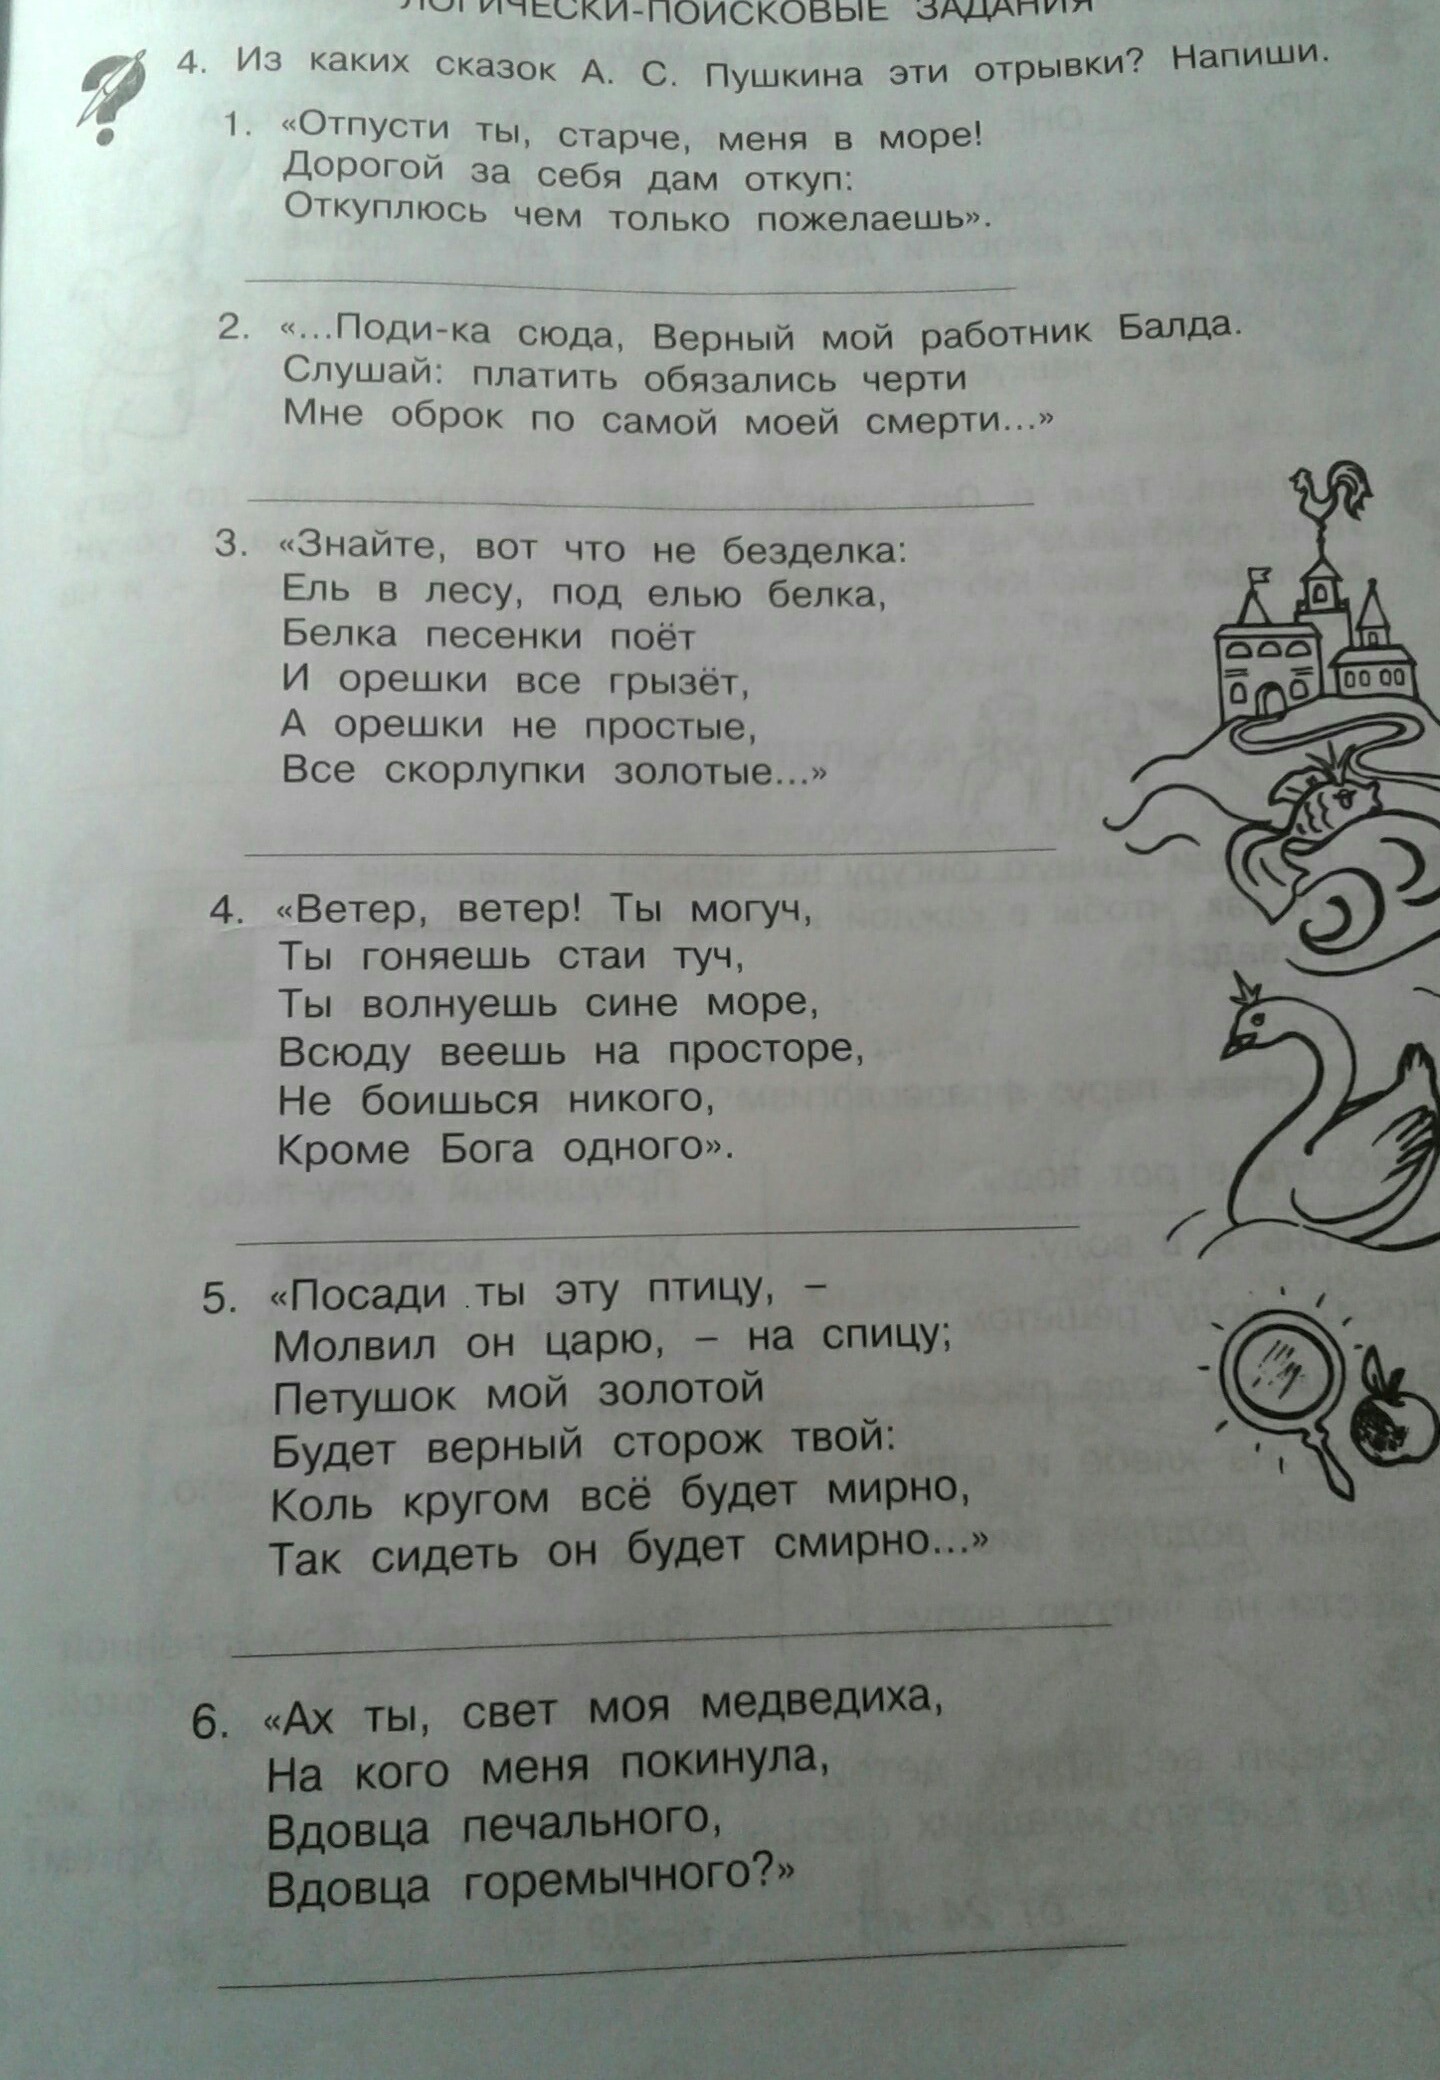 ЛОГИЧЕСКИ-ПОИСКОВЫЕ ЗАДАНИЯ
4. Из каких сказок А. С. Пушкина эти отрывки? Напиши.
1. «Отпусти ты, старче, меня в море!
Дорогой за себя дам откуп:
Откуплюсь чем только пожелаешь».
2. «...Поди-ка сюда, Верный мой работник Балда.
Слушай: платить обязались черти
Мне оброк по самой моей смерти...»
3. «Знайте, вот что не безделка:
Ель в лесу, под елью белка,
Белка песенки поёт
И орешки все грызёт,
А орешки не простые,
Все скорлупки золотые...»
4. «Ветер, ветер! Ты могуч,
Ты гоняешь стаи туч,
Ты волнуешь сине море,
Всюду веешь на просторе,
Не боишься никого,
Кроме Бога одного».
5. «Посади ты эту птицу, –
Молвил он царю, – на спицу;
Петушок мой золотой
Будет верный сторож твой:
Коль кругом всё будет мирно,
Так сидеть он будет смирно...»
6. «Ах ты, свет моя медведиха,
На кого меня покинула,
Вдовца печального,
Вдовца горемычного?»